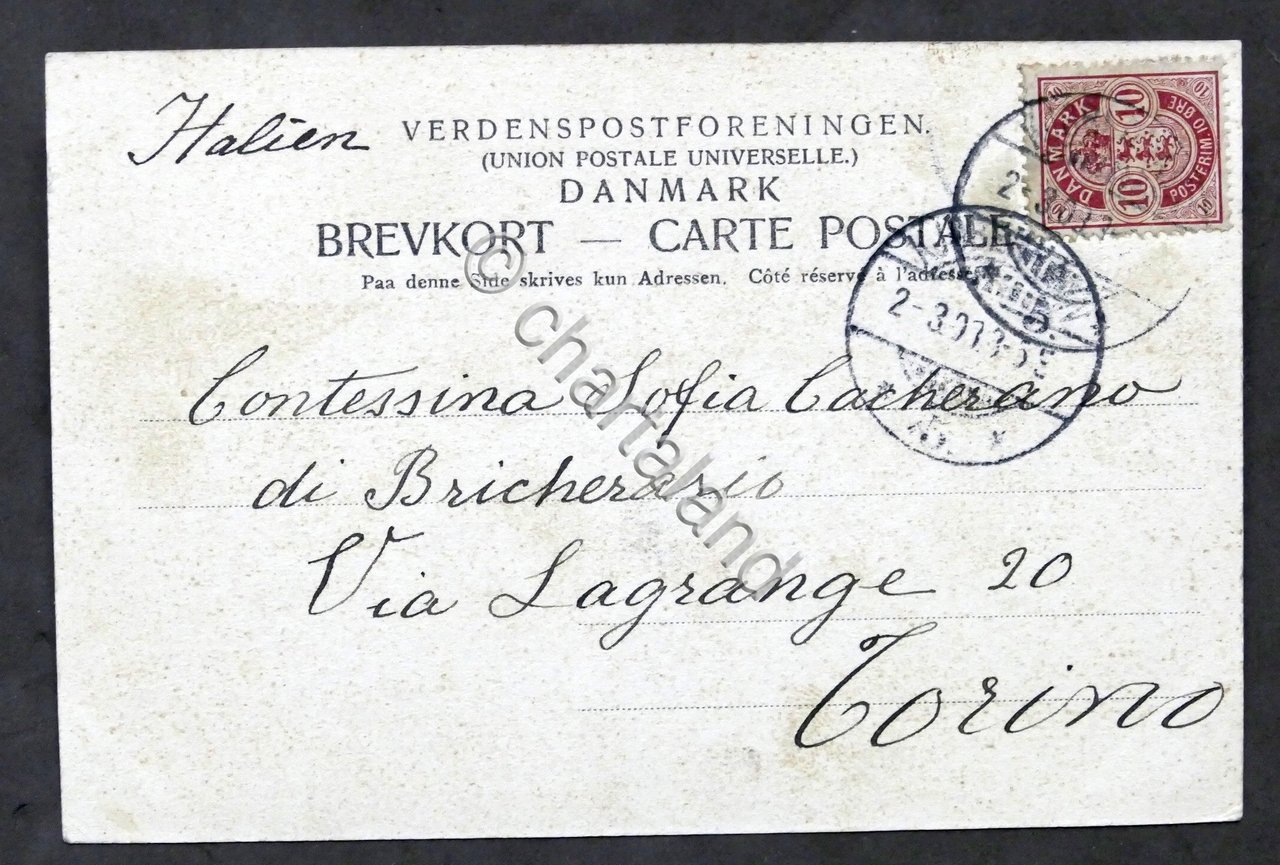 Italien
VERDENSPOSTFORENINGEN.
(UNION POSTALE UNIVERSELLE.)
DANMARK
BREVKORT — CARTE POSTALE
Paa denne Side skrives kun Adressen. Côté réservé à l'adresse.
DANMARK
POSTFRIM. 10 ØRE
10
10
10
10
10
10
2-3.0
KJØBENHAVN
2-3.07.3-
Contessina Sofia Cacherano
di Bricherasio
Via Lagrange 20
Torino
© chartaland